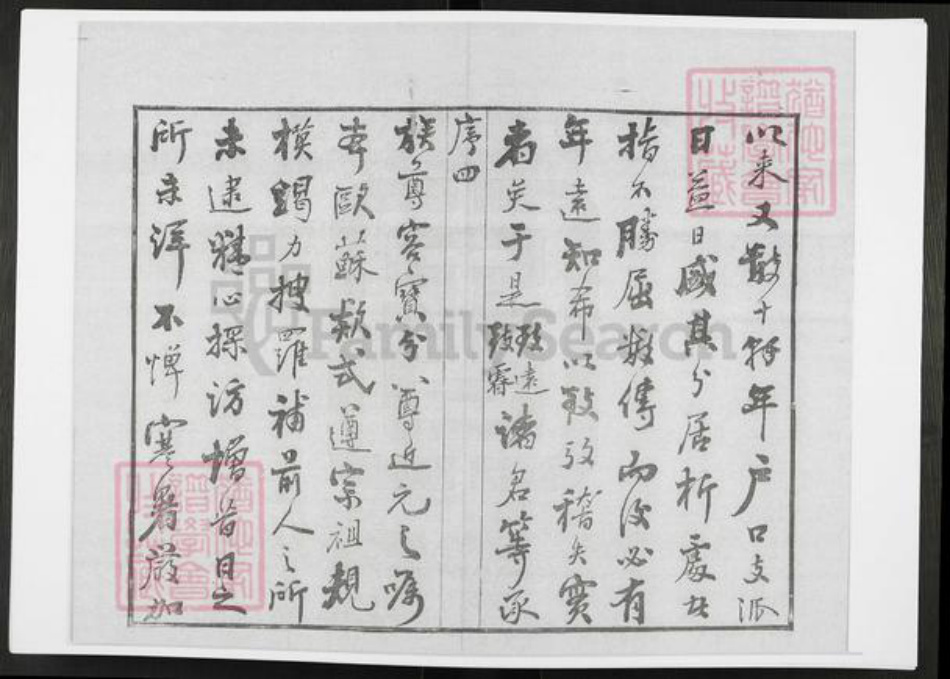 以来又數十餘年户口支派
日益日盛其分居析處者
指不勝屈数傳而後必有
年遠知希以致攷稽失實
者矣于是致遠致霖諸君等承
序四
族尊容寶分尊近元之嘱
本歐蘇欵式遵宗祖規
模竭力搜羅補前人之所
未逮精心探訪增昔日之
所未詳不憚寒暑嚴加
FamilySearch